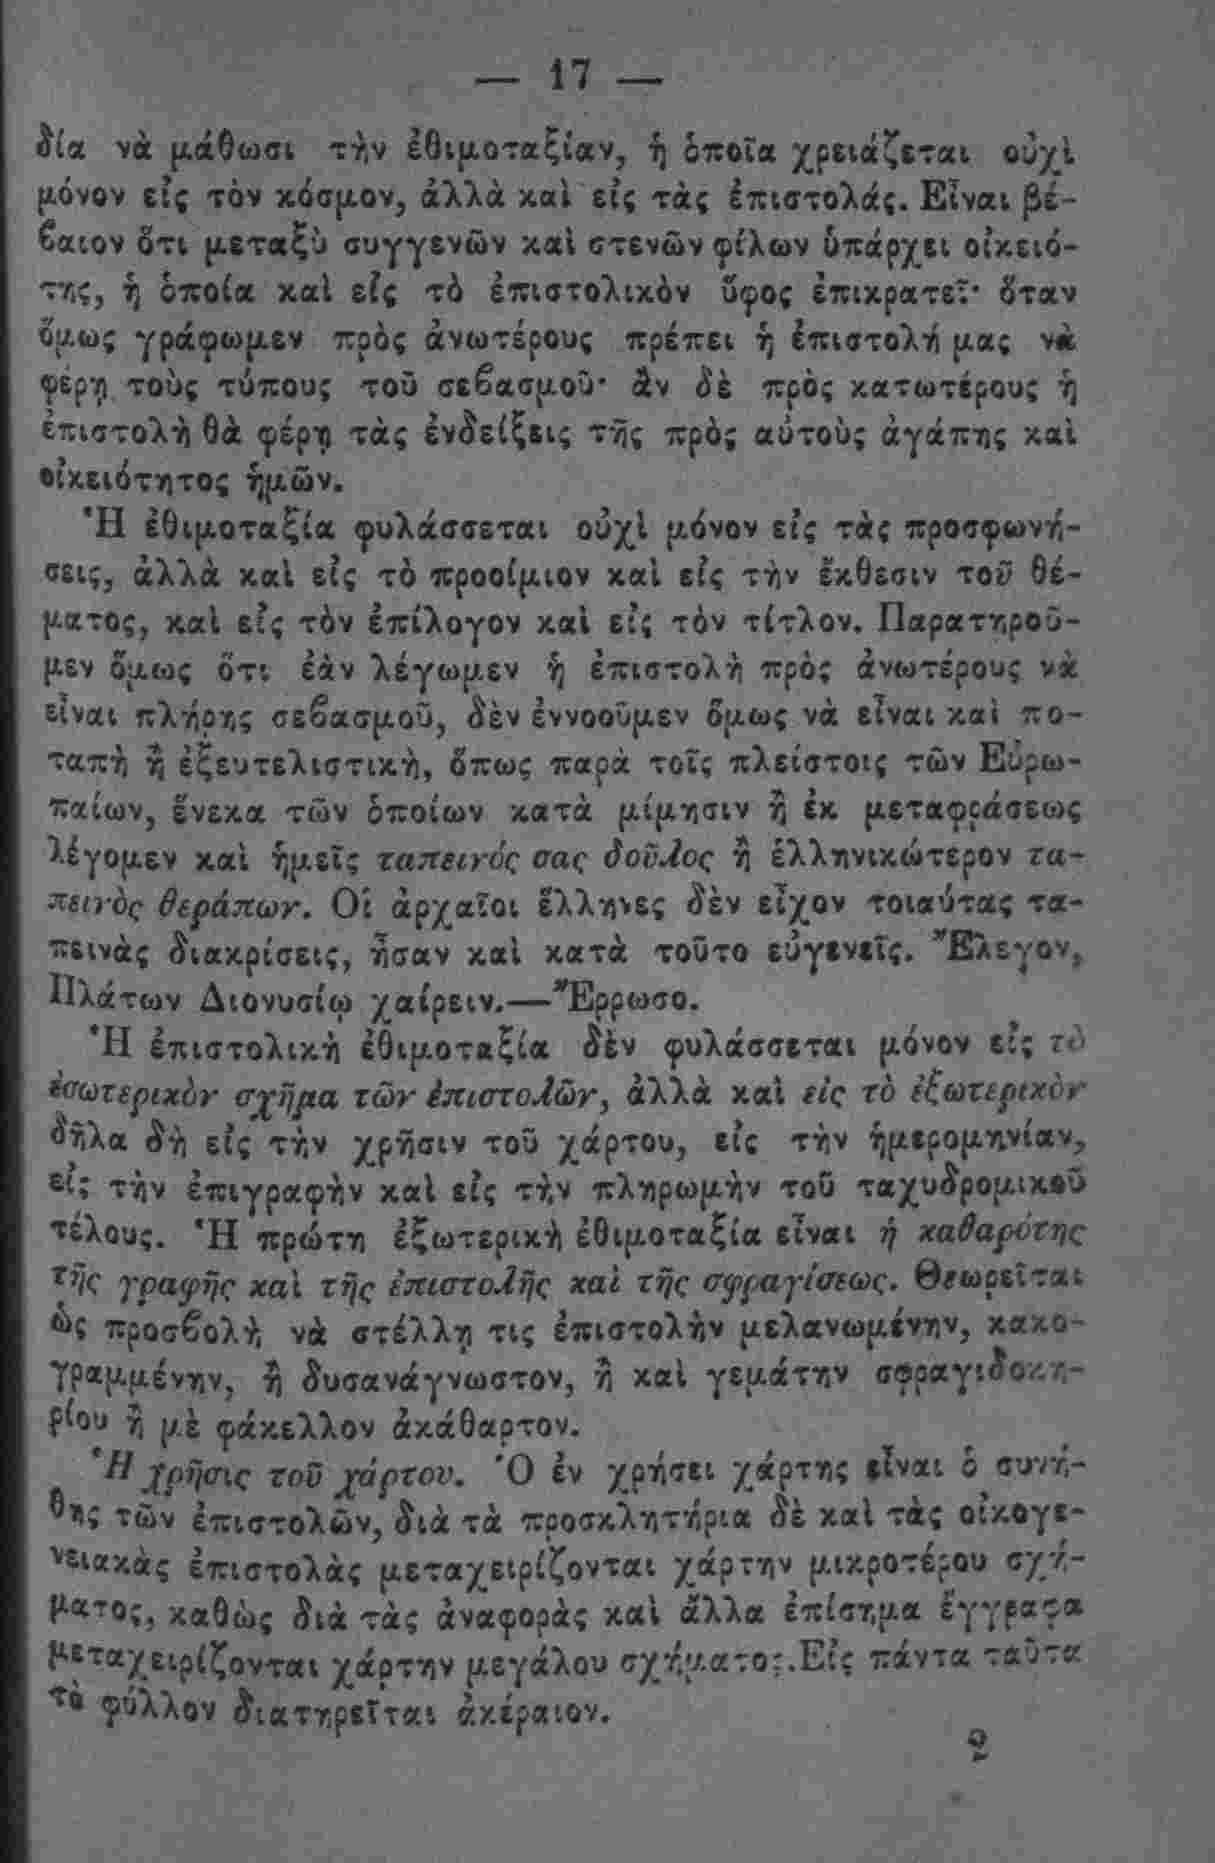 — 17 —
δία νὰ μάθωσι τὴν ἐθιμοταξίαν, ἡ ὁποῖα χρειάζεται οὐχὶ
μόνον εἰς τὸν κόσμον, ἀλλὰ καὶ εἰς τὰς ἐπιστολάς. Εἶναι βέ-
βαιον ὅτι μεταξὺ συγγενῶν καὶ στενῶν φίλων ὑπάρχει οἰκειό-
της, ἡ ὁποία καὶ εἰς τὸ ἐπιστολικὸν ὕφος ἐπικρατεῖ· ὅταν
ὅμως γράφωμεν πρὸς ἀνωτέρους πρέπει ἡ ἐπιστολή μας νὰ
φέρῃ τοὺς τύπους τοῦ σεβασμοῦ· ἂν δὲ πρὸς κατωτέρους ἡ
ἐπιστολὴ θὰ φέρῃ τὰς ἐνδείξεις τῆς πρὸς αὐτοὺς ἀγάπης καὶ
οἰκειότητος ἡμῶν.
Ἡ ἐθιμοταξία φυλάσσεται οὐχὶ μόνον εἰς τὰς προσφωνή-
σεις, ἀλλὰ καὶ εἰς τὸ προοίμιον καὶ εἰς τὴν ἔκθεσιν τοῦ θέ-
ματος, καὶ εἰς τὸν ἐπίλογον καὶ εἰς τὸν τίτλον. Παρατηροῦ-
μεν ὅμως ὅτι ἐὰν λέγωμεν ἡ ἐπιστολὴ πρὸς ἀνωτέρους νὰ
εἶναι πλήρης σεβασμοῦ, δὲν ἐννοοῦμεν ὅμως νὰ εἶναι καὶ πο-
ταπὴ ἢ ἐξευτελιστικὴ, ὅπως παρὰ τοῖς πλείστοις τῶν Εὐρω-
παίων, ἕνεκα τῶν ὁποίων κατὰ μίμησιν ἢ ἐκ μεταφράσεως
λέγομεν καὶ ἡμεῖς ταπεινός σας δοῦλος ἢ ἑλληνικώτερον τα-
πεινὸς θεράπων. Οἱ ἀρχαῖοι ἕλληνες δὲν εἶχον τοιαύτας τα-
πεινὰς διακρίσεις, ἦσαν καὶ κατὰ τοῦτο εὐγενεῖς. Ἔλεγον,
Πλάτων Διονυσίῳ χαίρειν.—Ἔρρωσο.
Ἡ ἐπιστολικὴ ἐθιμοταξία δὲν φυλάσσεται μόνον εἰς τὸ
ἐσωτερικὸν σχῆμα τῶν ἐπιστολῶν, ἀλλὰ καὶ εἰς τὸ ἐξωτερικὸν
δῆλα δὴ εἰς τὴν χρῆσιν τοῦ χάρτου, εἰς τὴν ἡμερομηνίαν,
εἰς τὴν ἐπιγραφὴν καὶ εἰς τὴν πληρωμὴν τοῦ ταχυδρομικοῦ
τέλους. Ἡ πρώτη ἐξωτερικὴ ἐθιμοταξία εἶναι ἡ καθαρότης
τῆς γραφῆς καὶ τῆς ἐπιστολῆς καὶ τῆς σφραγίσεως. Θεωρεῖται
ὡς προσβολὴ νὰ στέλλῃ τις ἐπιστολὴν μελανωμένην, κακο-
γραμμένην, ἢ δυσανάγνωστον, ἢ καὶ γεμάτην σφραγιδοκη-
ρίου ἢ μὲ φάκελλον ἀκάθαρτον.
Ἡ χρῆσις τοῦ χάρτου. Ὁ ἐν χρήσει χάρτης εἶναι ὁ συνή-
θης τῶν ἐπιστολῶν, διὰ τὰ προσκλητήρια δὲ καὶ τὰς οἰκογε-
νειακὰς ἐπιστολὰς μεταχειρίζονται χάρτην μικροτέρου σχή-
ματος, καθὼς διὰ τὰς ἀναφορὰς καὶ ἄλλα ἐπίσημα ἔγγραφα
μεταχειρίζονται χάρτην μεγάλου σχήματος. Εἰς πάντα ταῦτα
τὸ φύλλον διατηρεῖται ἀκέραιον.
2